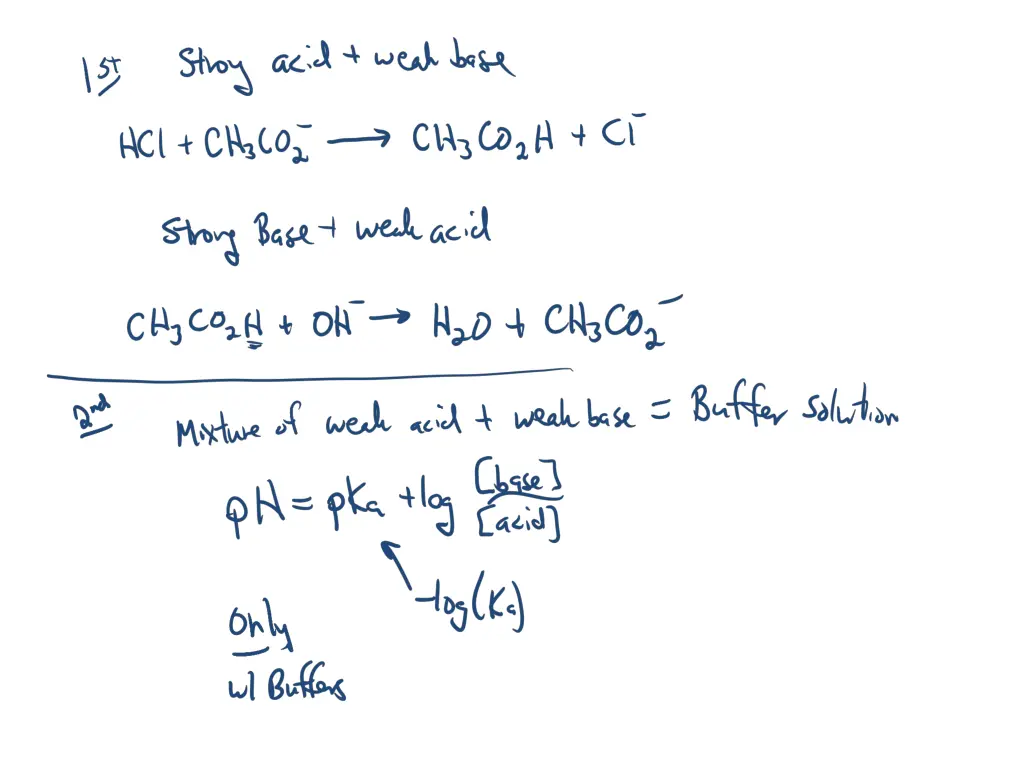 1st Strong acid + weak base
HCl + CH₃CO₂⁻ → CH₃CO₂H + Cl⁻
Strong Base + weak acid
CH₃CO₂H + OH⁻ → H₂O + CH₃CO₂⁻
2nd Mixture of weak acid + weak base = Buffer solution
pH = pKa + log [base]/[acid]
-log(Ka)
Only
w/ Buffers